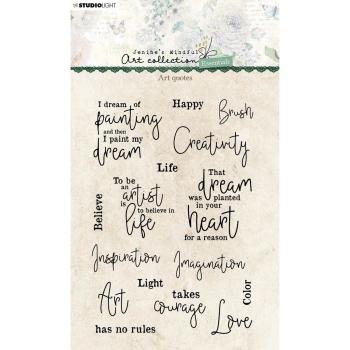 STUDIOLIGHT
Jenine's Mindful
Art collection
Essentials
Art quotes
I dream of
painting
and then
I paint my
dream
Happy
Brush
Creativity
Life
To be
an
artist
is to believe in
life
That
dream
was planted
in your
heart
for a reason
Believe
Inspiration
Imagination
Light
Color
Art
has no rules
takes
courage
Love